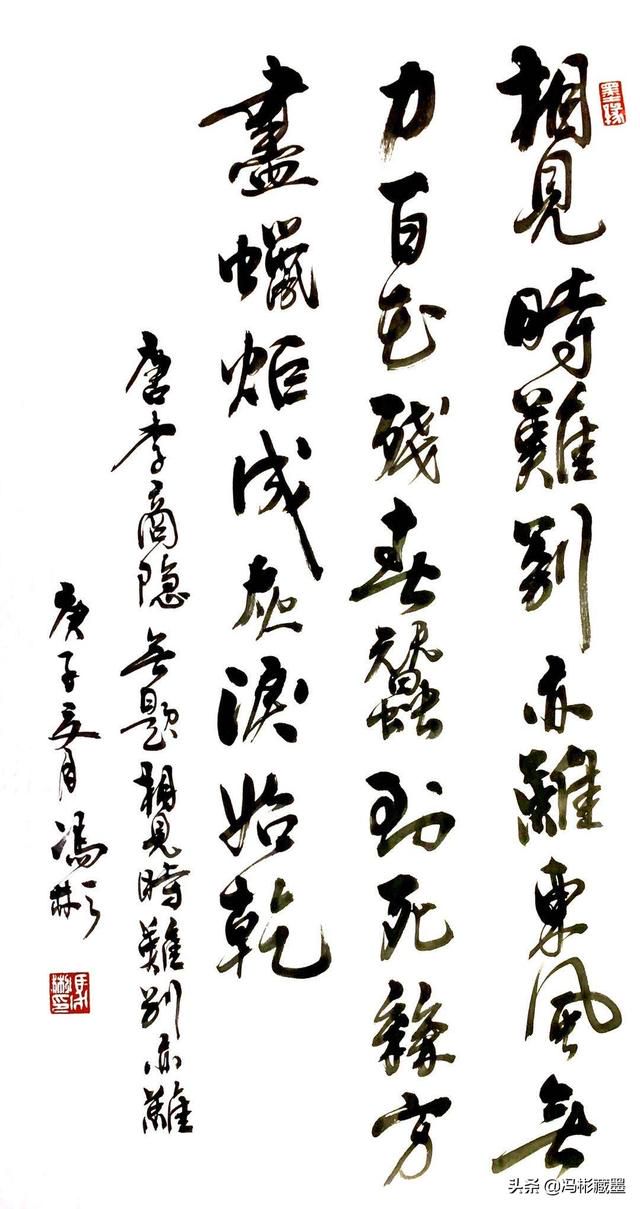 墨緣
相見時難別亦難東風無
力百花殘春蠶到死絲方
盡蠟炬成灰淚始乾
唐李商隐無題相見時難別亦難
庚子月馮彬
头条 @冯彬藏墨